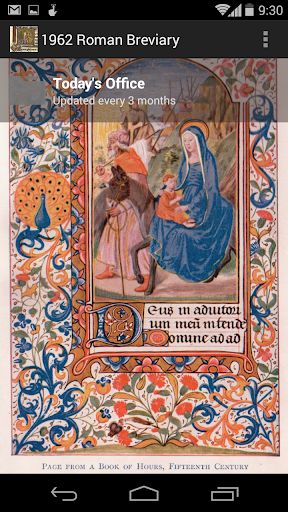 9:30
1962 Roman Breviary
Today's Office
Updated every 3 months
Deus in adiutori
um meu intende
Domine ad ad
PAGE FROM A BOOK OF HOURS, FIFTEENTH CENTURY